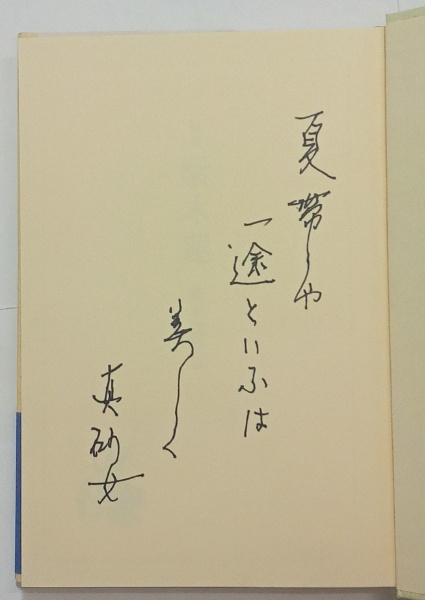 夏帯や
一途といふは
美しく
真砂女